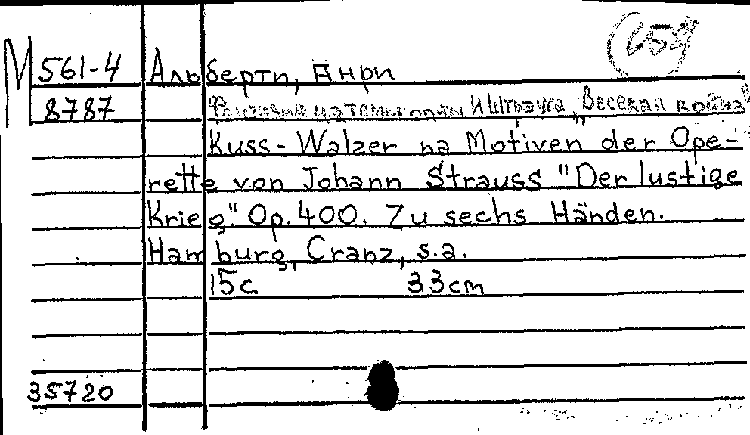 М 561-4 Альберти, Анри
8787 на темы И. Штрауса „Веселая война"
Kuss-Walzer na Motiven der Ope-
rette von Johann Strauss "Der lustige
Krieg" Op. 400. Zu sechs Händen.
Hamburg, Cranz, s.a.
15c 33cm
35720